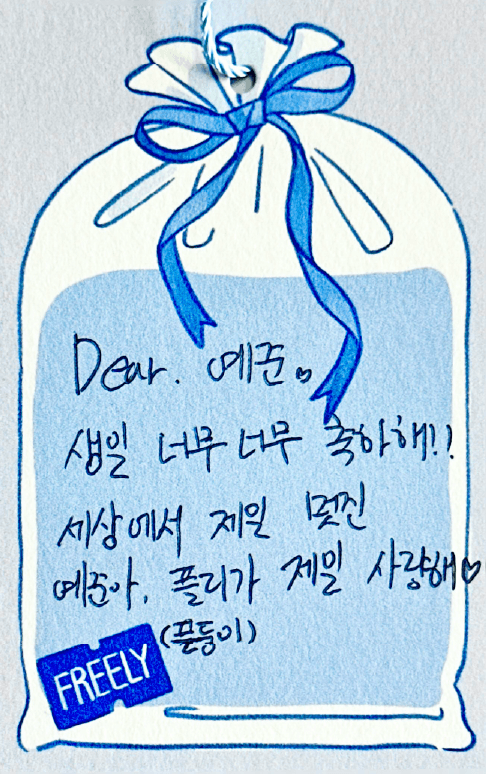 Dear. 예준♡
생일 너무 너무 축하해!!
세상에서 제일 멋진
예준아. 플리가 제일 사랑해♡
(픈둥이)
FREELY